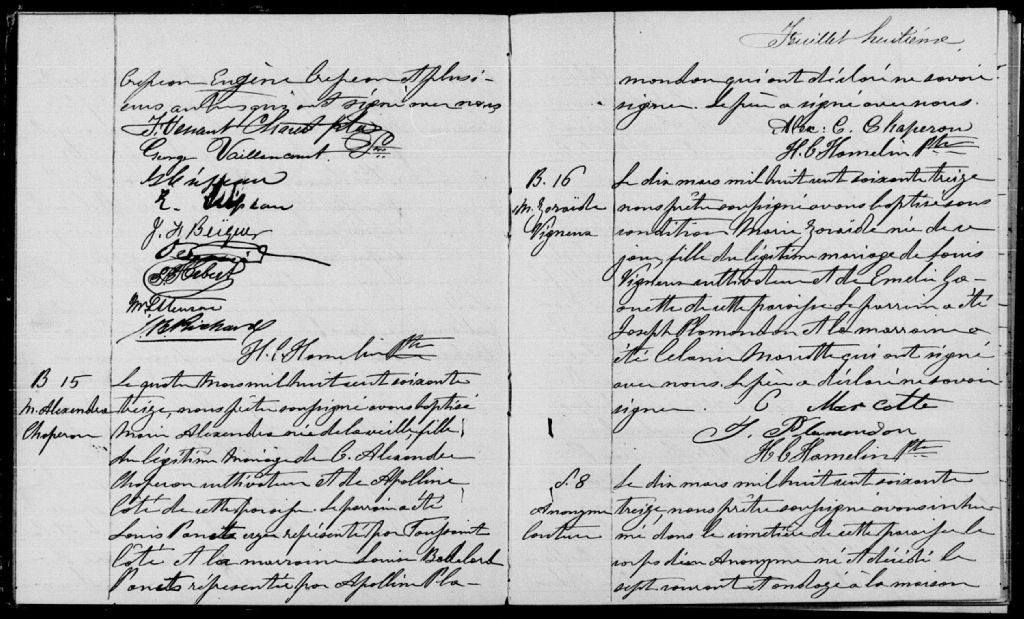 Crepeau Eugène Crepeau et plusi-
eurs autres qui ont signé avec nous
J. Venant Charest ptre
George Vaillancourt
E. Crepeau
J. A. Beique
Hebert
H. C. Hamelin Ptre
B 15
M. Alexandra
Chaperon
Le quatre Mars mil huit cent soixante
treize, nous prêtre soussigné avons baptisé
Marie Alexandra née de la veille, fille
du légitime mariage de C. Alexandre
Chaperon cultivateur et de Apolline
Côté de cette paroisse. Le parrain a été
Louis représenté par Toussaint
Côté et la marraine Louise
représentée par Apolline Pla-
Feuillet huitième
mondon qui ont déclaré ne savoir
signer. Le père a signé avec nous.
Alex: C. Chaperon
H. C. Hamelin Ptre
B. 16
M. Zoraïde
Vigneux
Le dix mars mil huit cent soixante treize
nous prêtre soussigné avons baptisé sous
condition Marie Zoraïde née de ce
jour, fille du légitime mariage de Louis
Vigneux cultivateur et de Emélie Ga-
ouette de cette paroisse Le parrain a été
Joseph Plamondon et la marraine a
été Celanie Marcotte qui ont signé
avec nous. Le père a déclaré ne savoir
signer. C Marcotte
J. Plamondon
H C Hamelin Ptre
S. 8
Anonyme
Couture
Le dix mars mil huit cent soixante
treize, nous prêtre soussigné avons inhu-
mé dans le cimetière de cette paroisse le
corps d'un Anonyme né et décédé le
sept courant et ondoyé à la maison